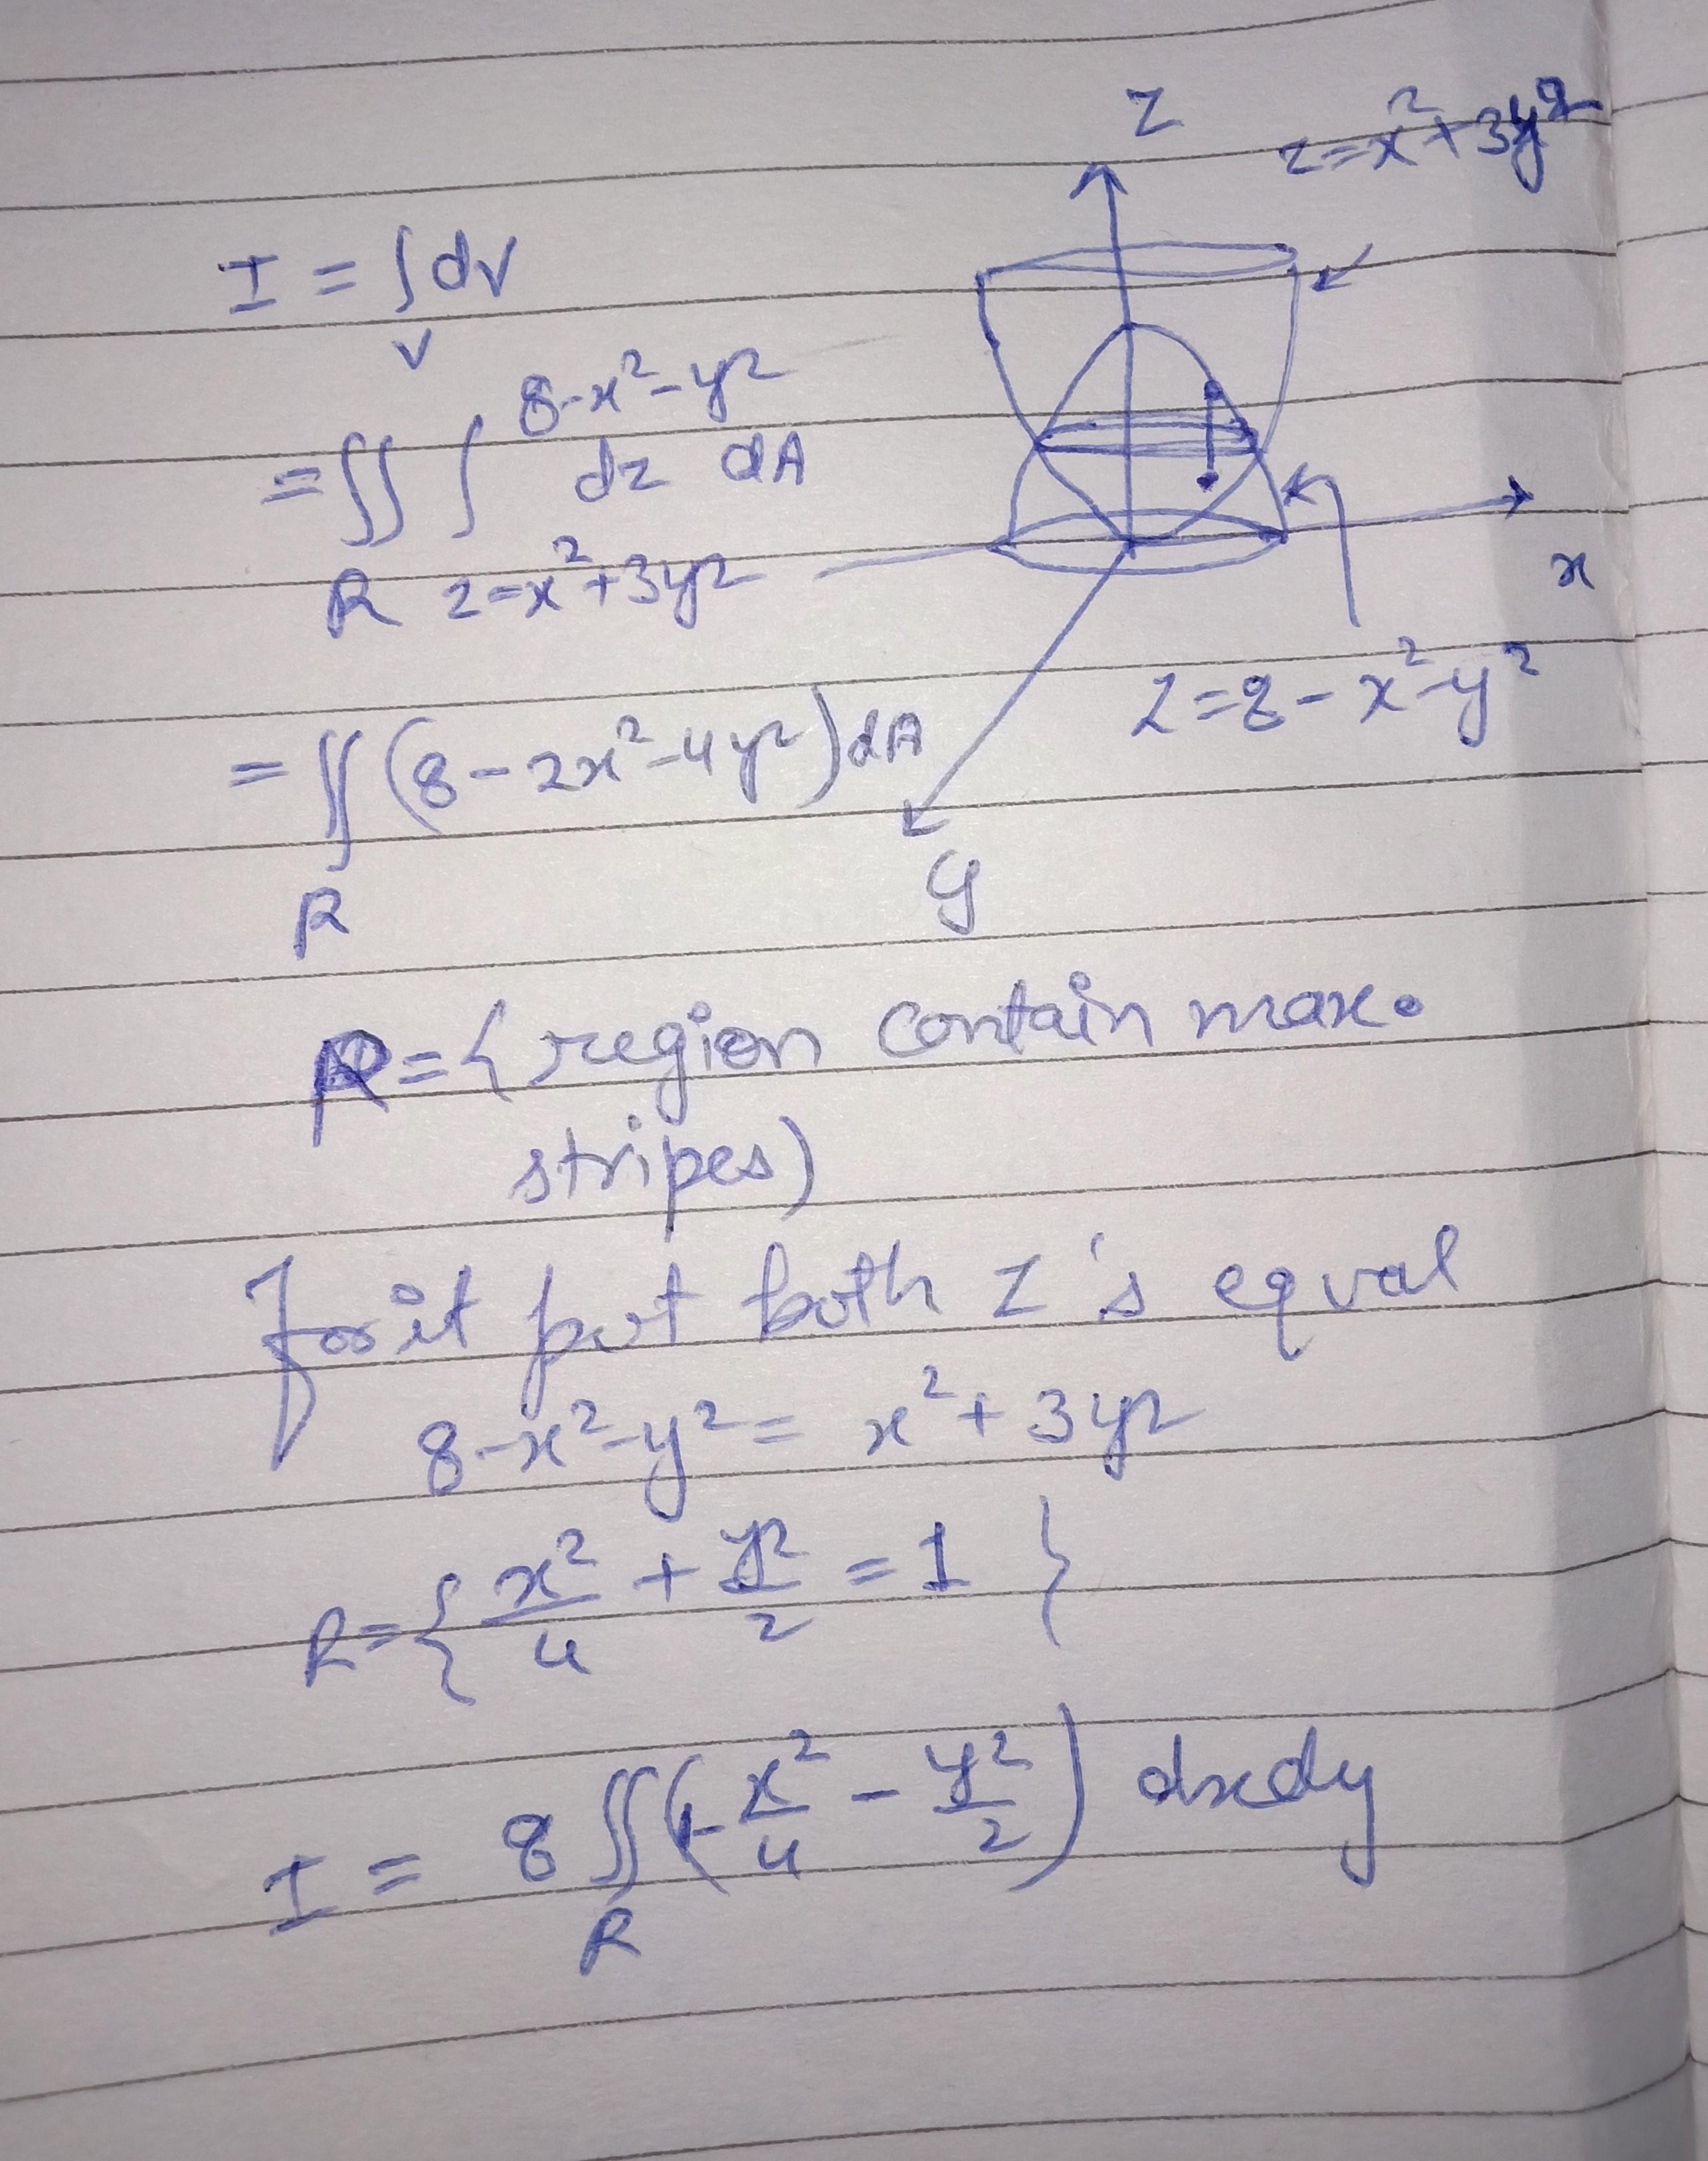 z
z=x²+3y²
I = ∫dv
v
8-x²-y²
=∬ ∫ dz dA
R z=x²+3y²
x
z=8-x²-y²
=∬(8-2x²-4y²)dA
R
y
R={region contain max.
stripes)
For it put both z's equal
8-x²-y² = x²+3y²
R={x²/4 + y²/2 = 1 }
I = 8∬(1-x²/4 - y²/2) dxdy
R